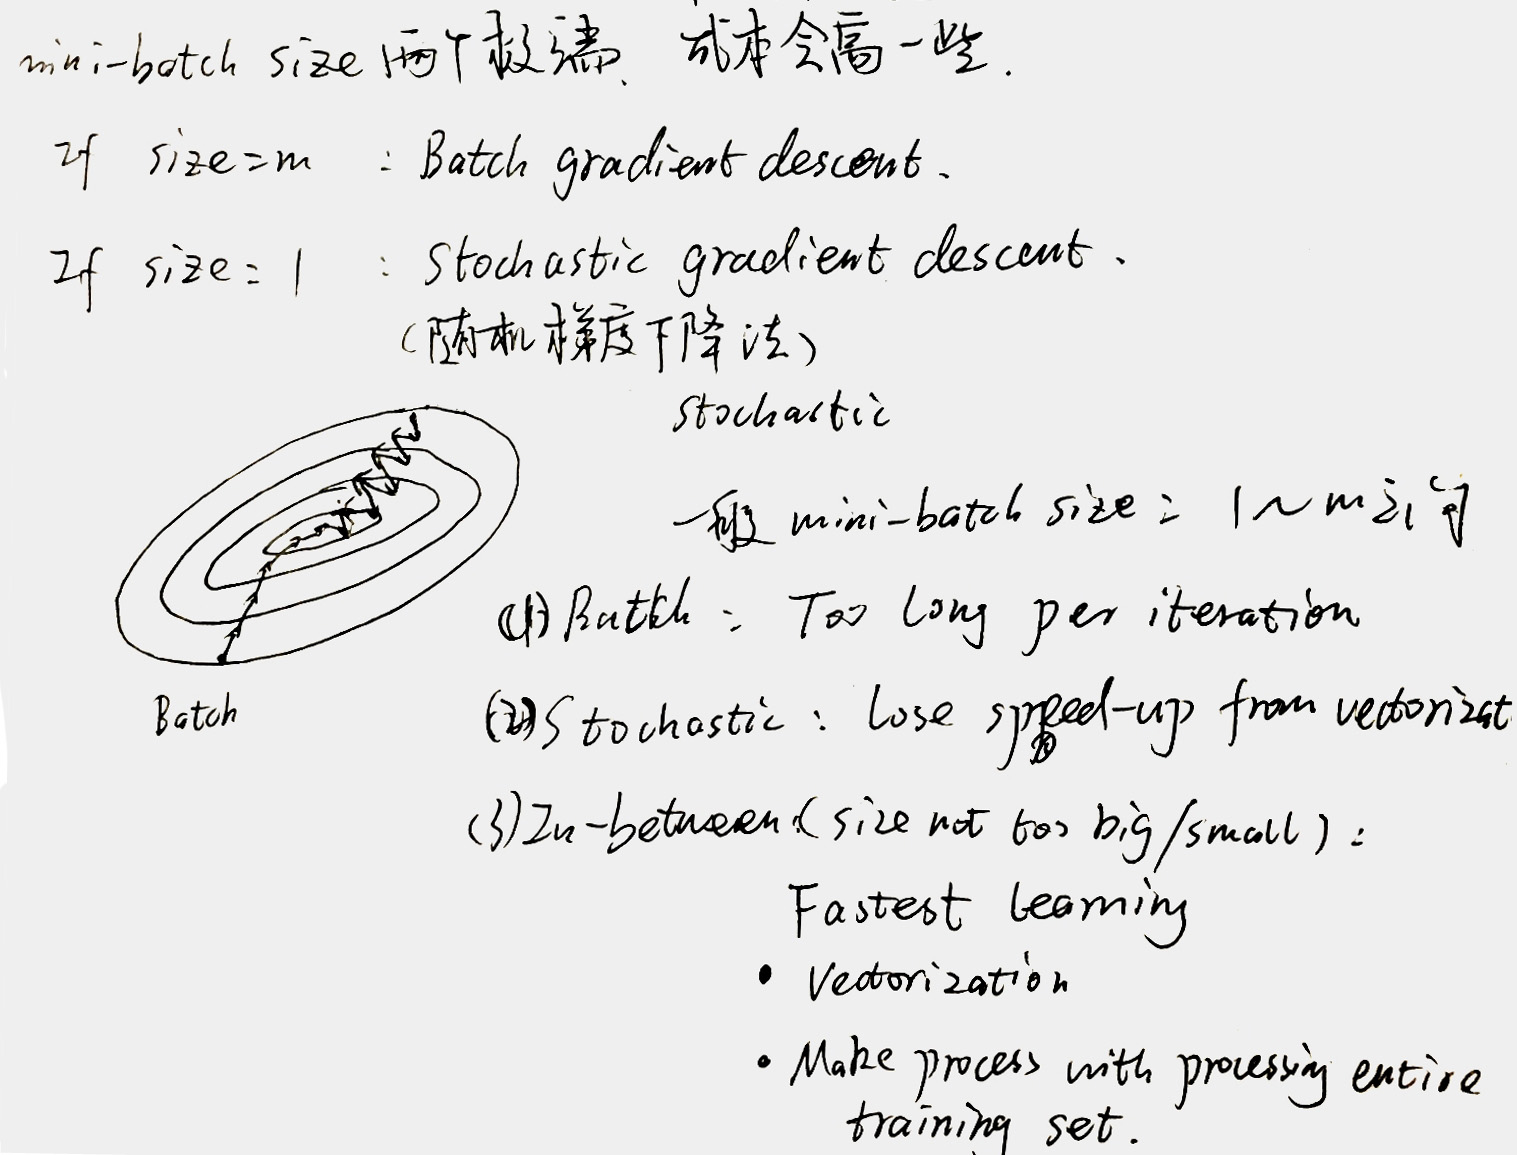 mini-batch size 两个极端、成本会高一些.
If size=m : Batch gradient descent.
If size=1 : Stochastic gradient descent.
(随机梯度下降法)
Stochastic
一般 mini-batch size: 1~m之间
(1) Batch: Too long per iteration
Batch
(2) Stochastic: Lose speed-up from vectorizat
(3) In-between (size not too big/small):
Fastest learning
• Vectorization
• Make process with processing entire
training set.